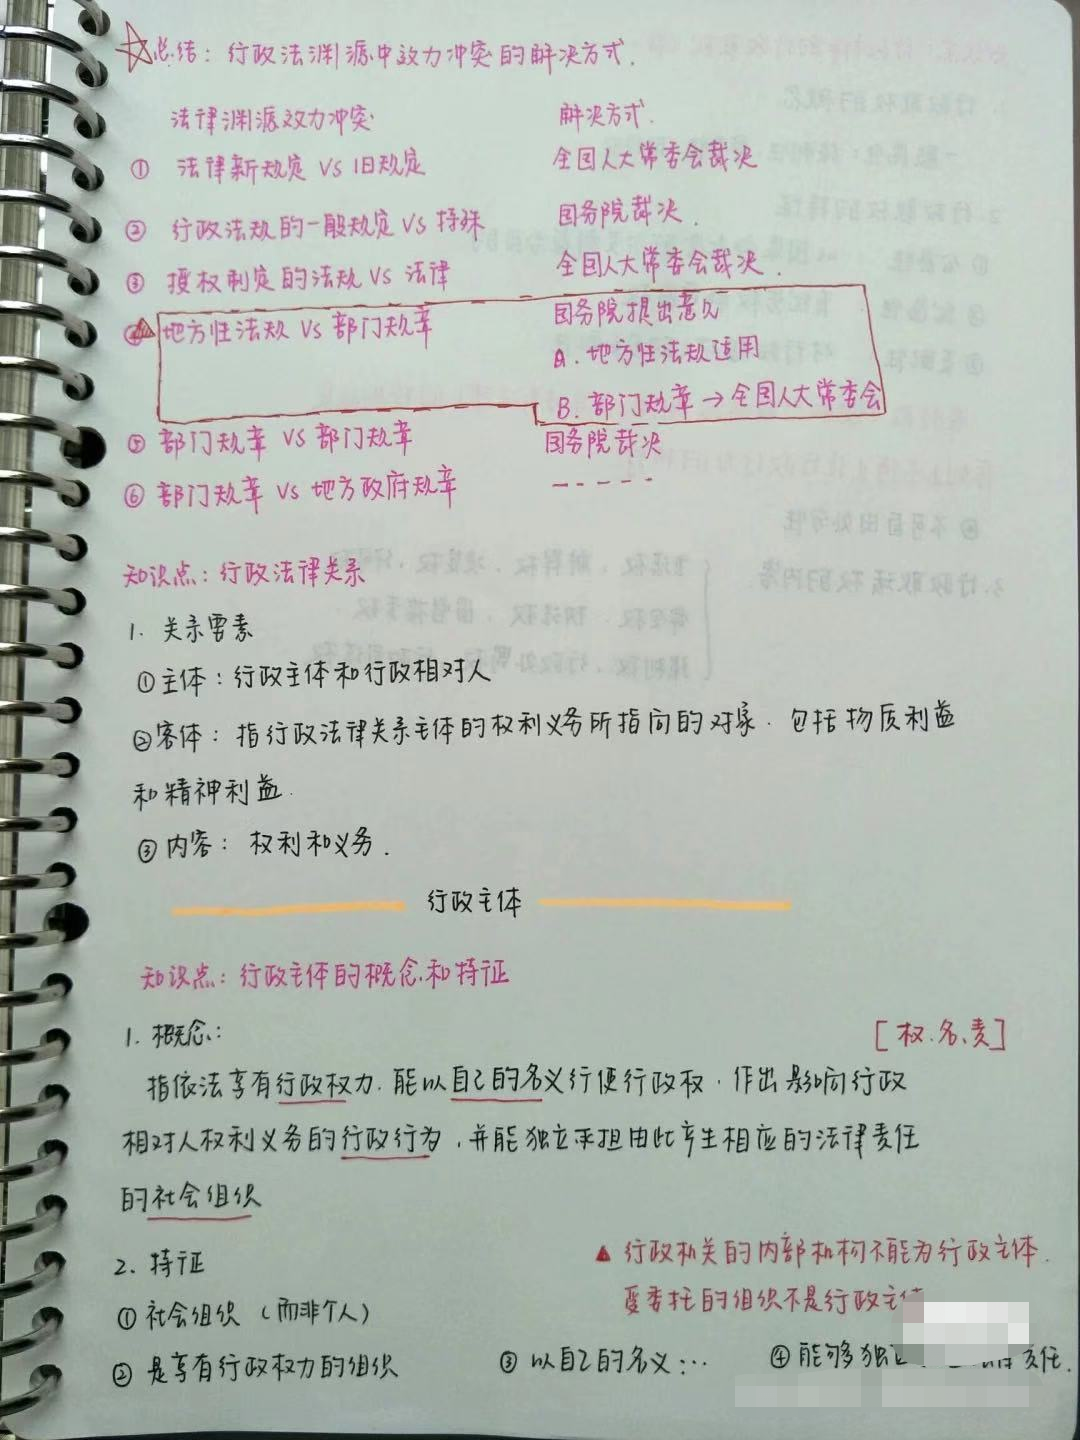 ☆总结：行政法渊源中效力冲突的解决方式.
法律渊源效力冲突 解决方式.
① 法律新规定 VS 旧规定 全国人大常委会裁决
② 行政法规的一般规定 VS 特殊 国务院裁决.
③ 授权制定的法规 VS 法律 全国人大常委会裁决.
④ 地方性法规 VS 部门规章 国务院提出意见
A. 地方性法规适用
B. 部门规章→全国人大常委会
⑤ 部门规章 VS 部门规章 国务院裁决
⑥ 部门规章 VS 地方政府规章 -----
知识点：行政法律关系
1. 关系要素
①主体：行政主体和行政相对人
②客体：指行政法律关系主体的权利义务所指向的对象.包括物质利益
和精神利益.
③内容：权利和义务.
行政主体
知识点：行政主体的概念和特征
1. 概念：
[权.名.责]
指依法享有行政权力.能以自己的名义行使行政权.作出影响行政
相对人权利义务的行政行为,并能独立承担由此产生相应的法律责任
的社会组织
▲ 行政机关的内部机构不能为行政主体.
受委托的组织不是行政主体
2. 特征
① 社会组织（而非个人）
② 是享有行政权力的组织 ③ 以自己的名义：… ④ 能够独 责任.